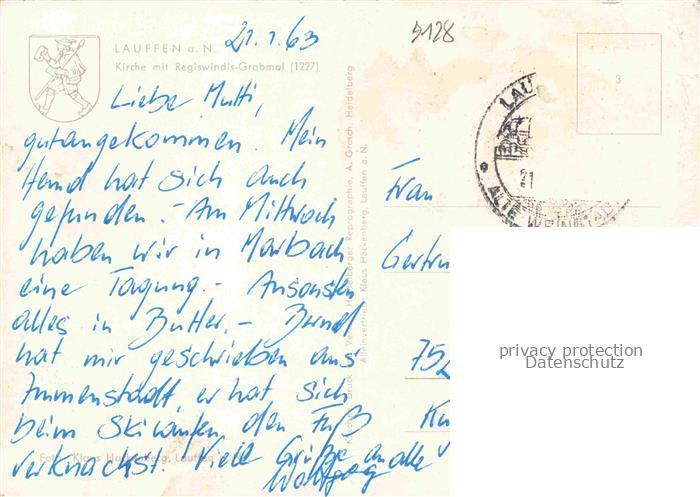 LAUFFEN a. N.
Kirche mit Regiswindis-Grabmal (1227)
21.1.63
5128
3
Liebe Mutti,
gut angekommen. Mein
Hemd hat sich auch
gefunden. – Am Mittwoch
haben wir in Marbach
eine Tagung. – Ansonsten
alles in Butter. – Bernd
hat mir geschrieben aus
Immenstadt, er hat sich
beim Skilaufen den Fuß
verknackst. Viele Grüße an alle
Wolfgang
Frau
Gertru
752
LAU
21
ALTE WEINSTAD
Heidelberger Reprographie A. Grosch, Heidelberg
Alleinvertrieb Klaus Hackenberg, Lauffen a. N.
Foto: Klaus Hackenberg, Lauffen
privacy protection
Datenschutz